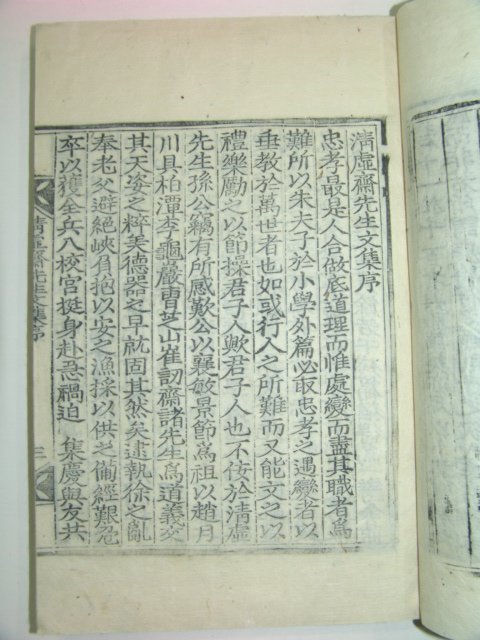 清虛齋先生文集序
忠孝最是人合做底道理而惟處變而盡其職者爲
難所以朱夫子於小學外篇必取忠孝之遇變者以
垂教於萬世者也如或行人之所難而又能文之以
禮樂勵之以節操君子人歟君子人也不佞於淸虛
先生孫公竊有所感歎公以襄敏景節爲祖以趙月
川具柏潭李龜巖曺芝山崔訒齋諸先生爲道義交
其天姿之粹美德器之早就固其然矣逮執徐之亂
奉老父避絕峽負抱以安之漁採以供之備經艱
卒以獲全兵八校官挺身赴忍禍迫 集慶與友共
清虛齋先生文集序